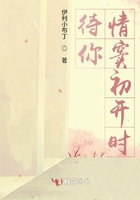 情窦初开时
待你
伊利小布丁
◎ 著